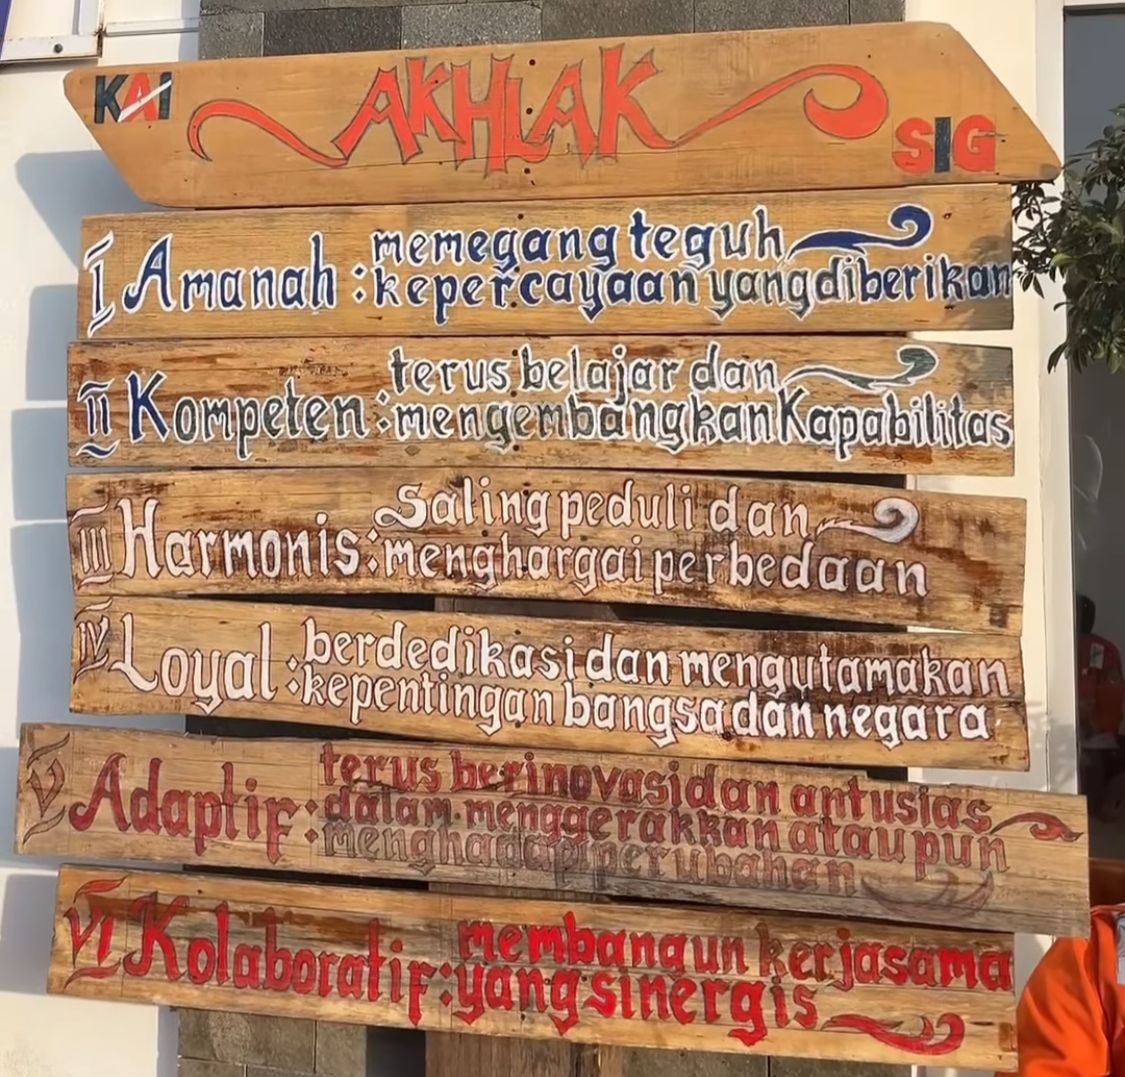 KAI AKHLAK SIG
I Amanah : memegang teguh
kepercayaan yang diberikan
II Kompeten : terus belajar dan
mengembangkan Kapabilitas
III Harmonis : Saling peduli dan
menghargai perbedaan
IV Loyal : berdedikasi dan mengutamakan
kepentingan bangsa dan negara
V Adaptif : terus berinovasi dan antusias
dalam menggerakkan ataupun
menghadapi perubahan
VI Kolaboratif : membangun kerjasama
yang sinergis